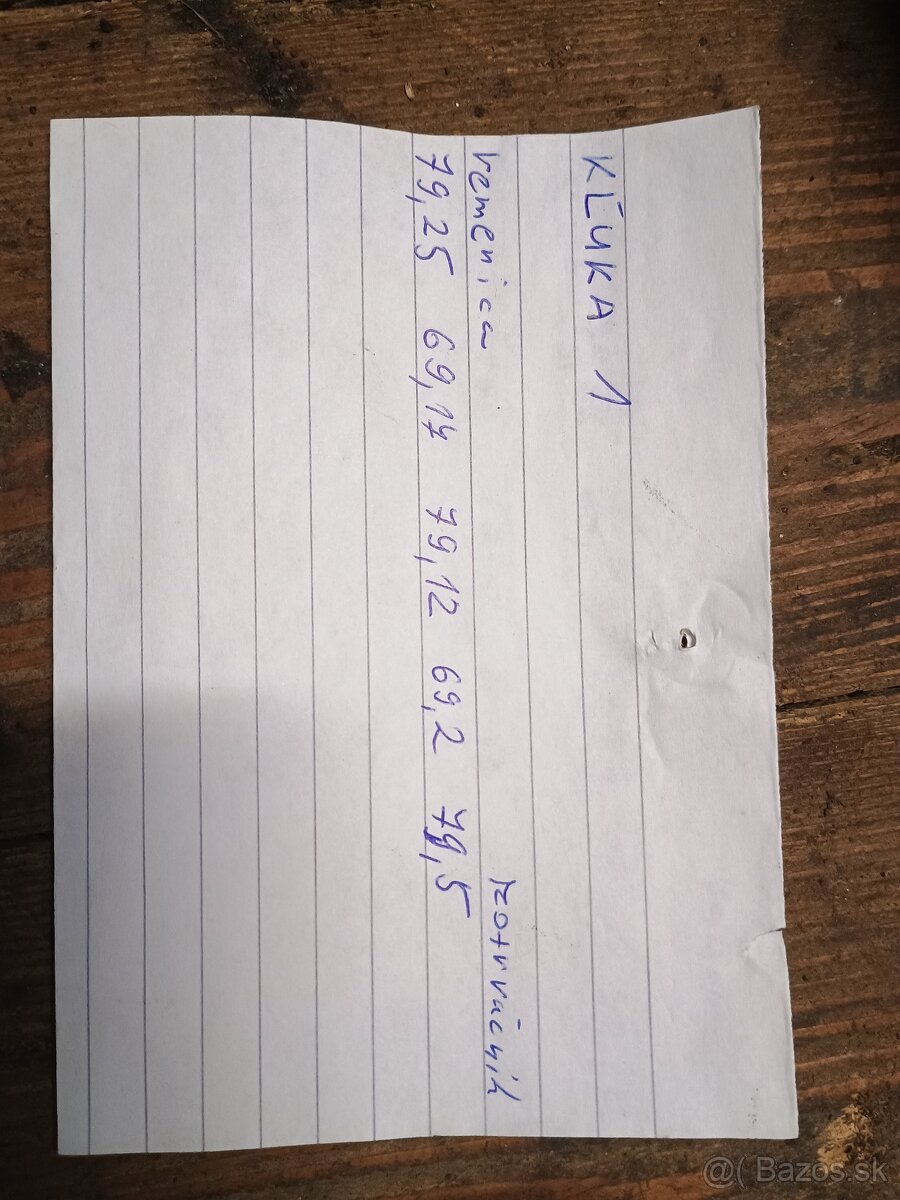 KĹUKA 1
remenica zotrvačník
79,25 69,14 79,12 69,2 79,5
@( Bazos.sk